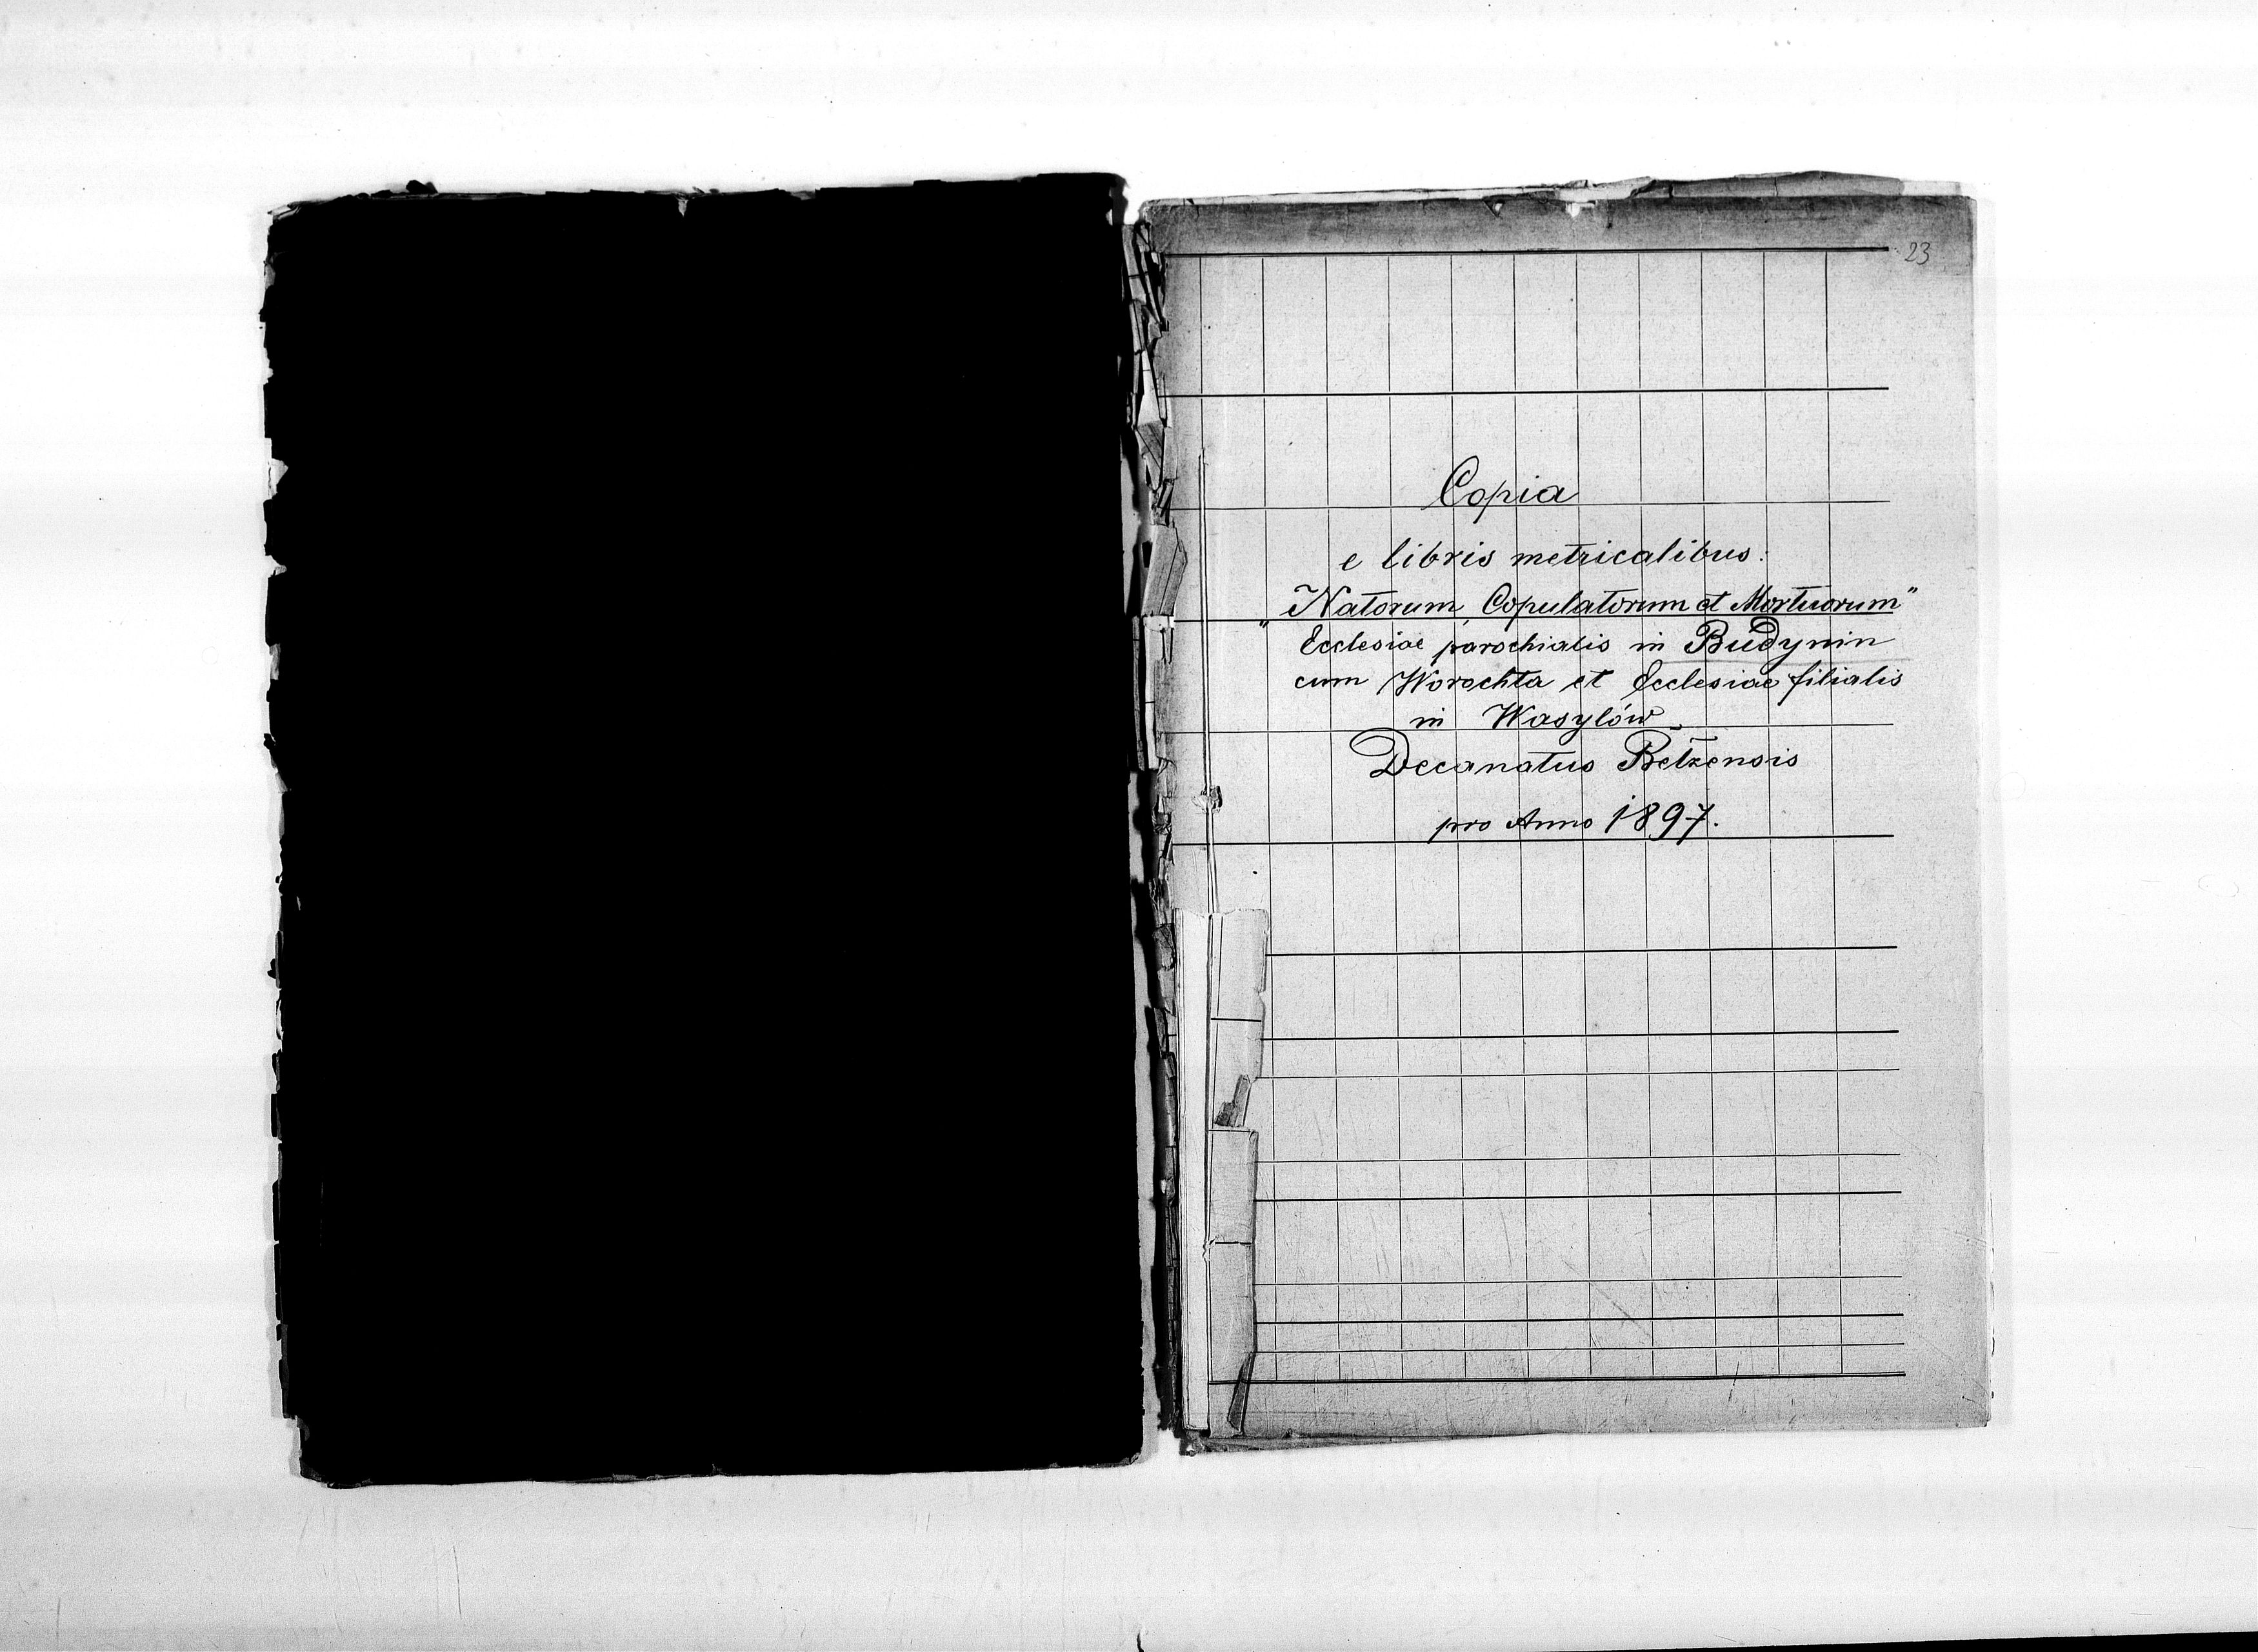 23
Copia
e libris metricalibus:
„Natorum, Copulatorum et Mortuorum"
Ecclesiae parochialis in Budynin
cum Worochta et Ecclesiae filialis
in Wasylów
Decanatus Bełzensis
pro Anno 1897.